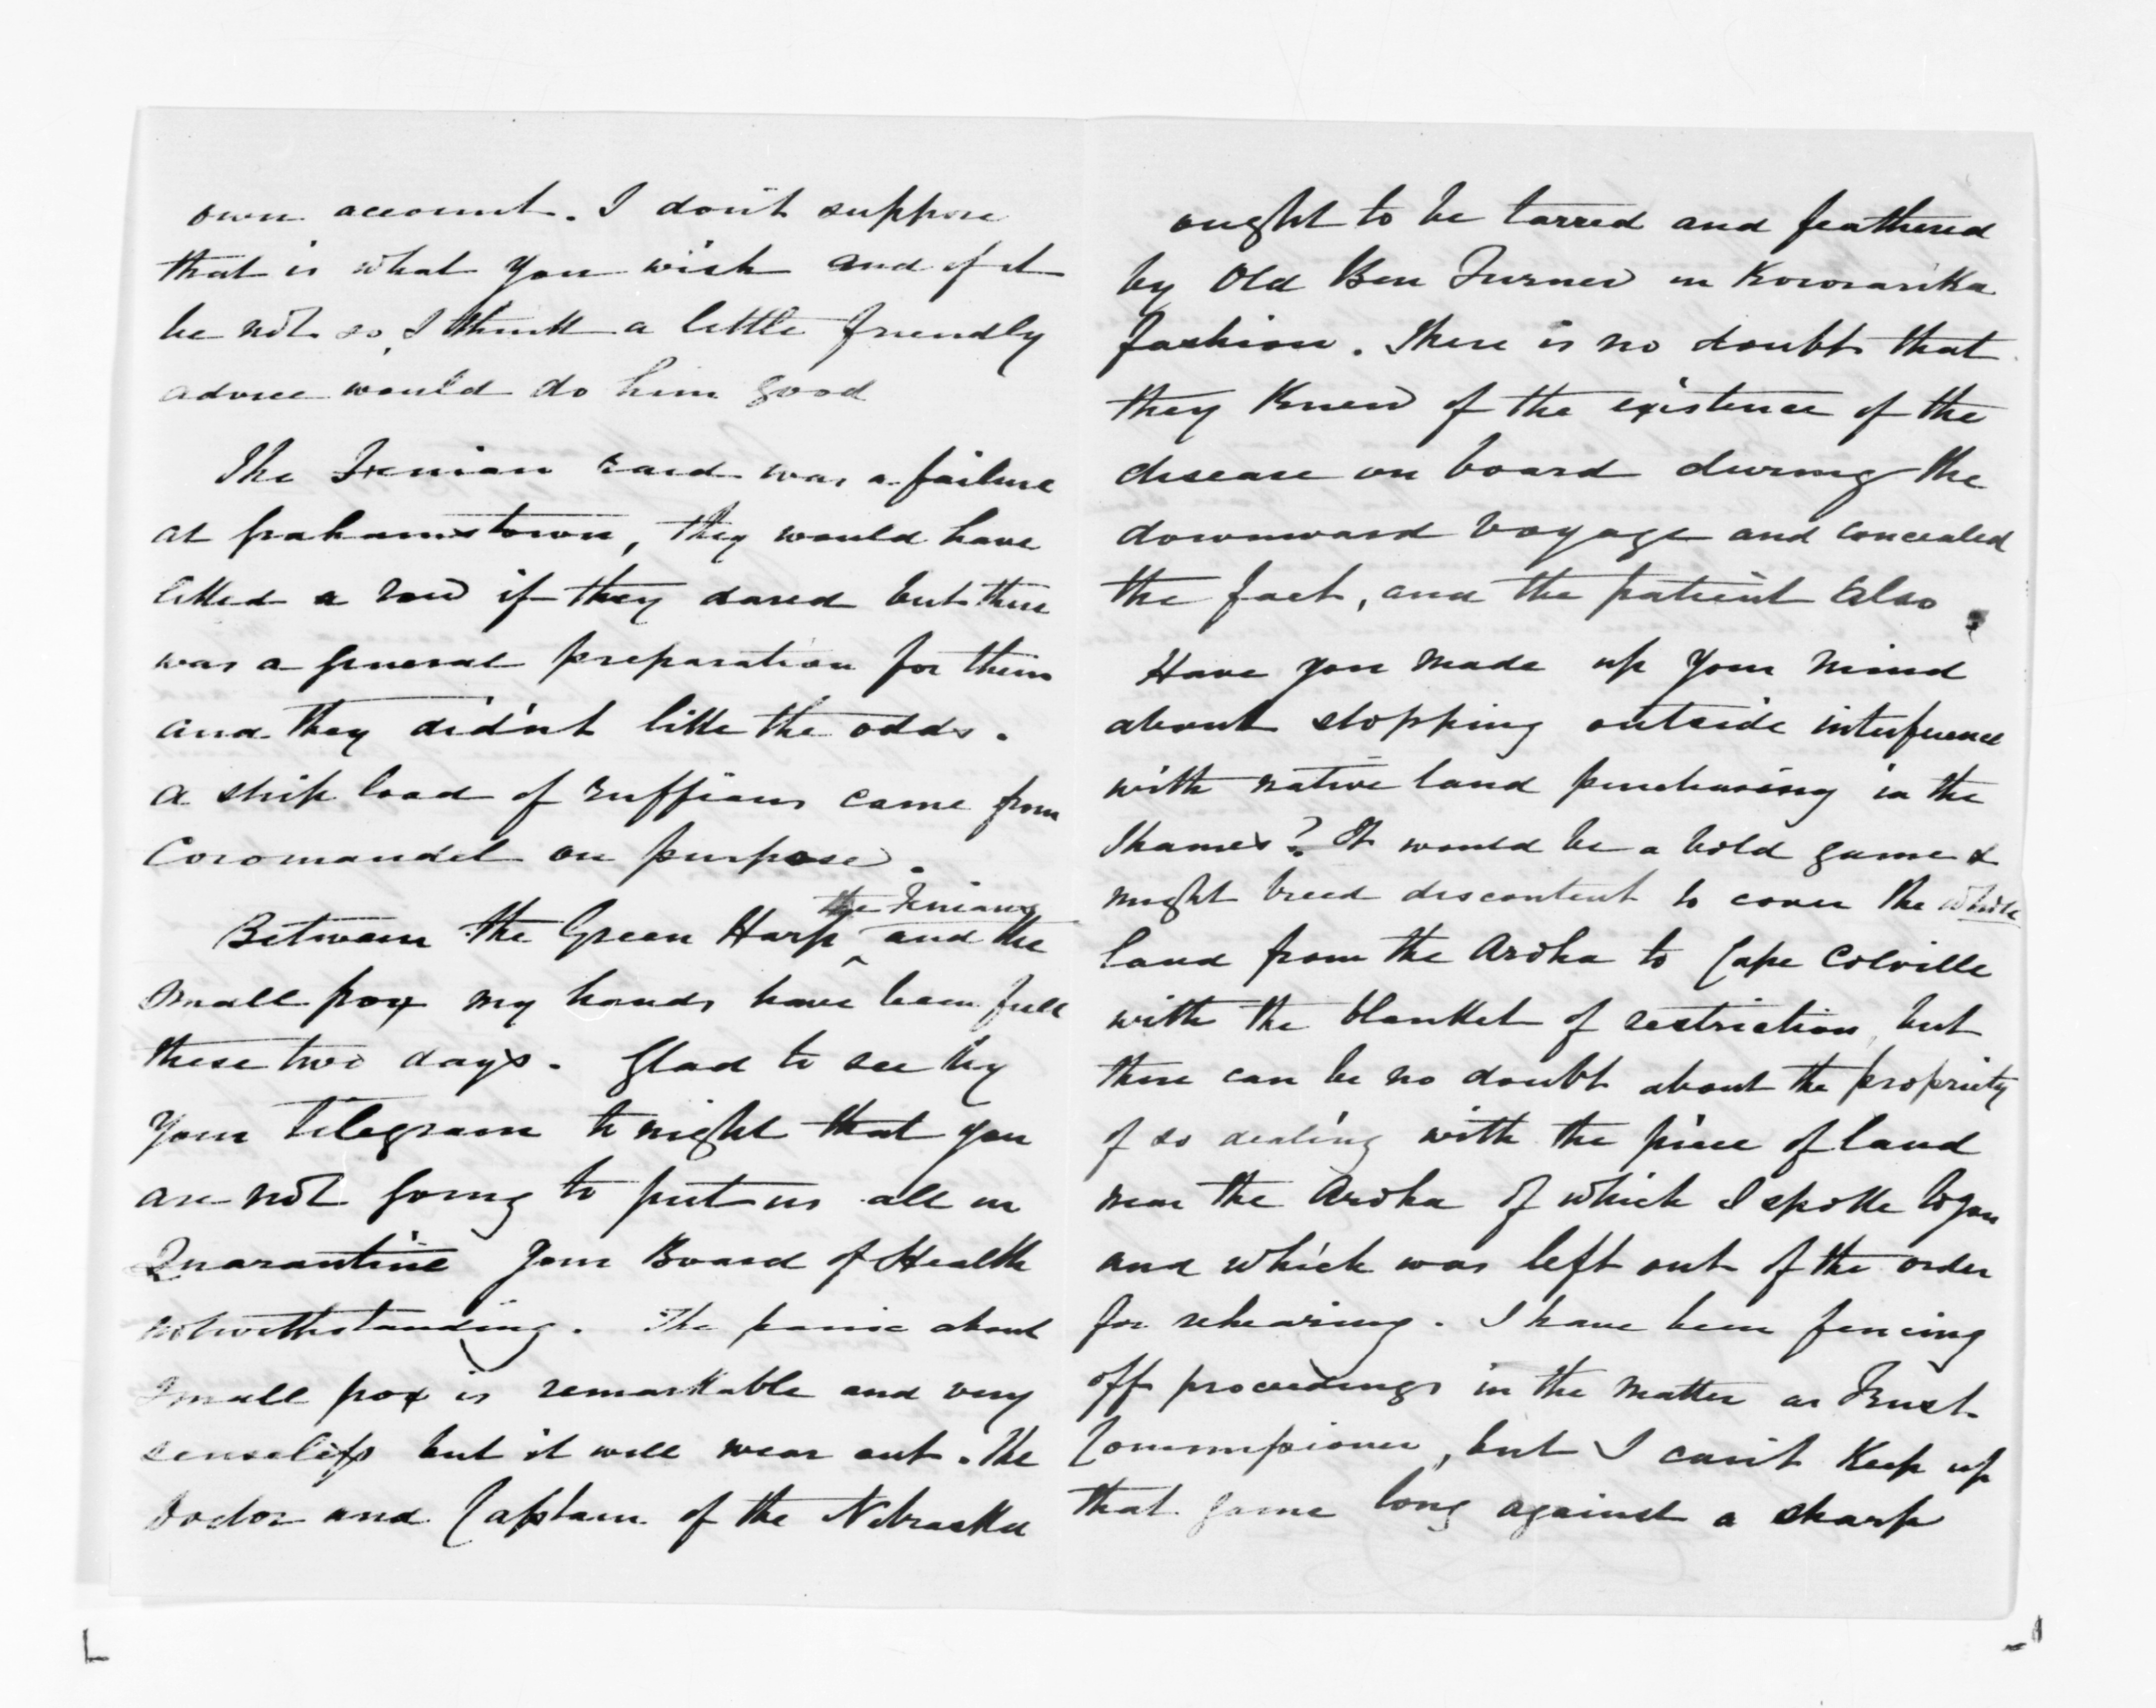 own account. I don't suppose
that is what you wish and if it
be not so, I think a little friendly
advice would do him good
The Fenian raid was a failure
at Grahamstown, they would have
liked a row if they dared but there
was a general preparation for them
and they did'nt like the odds.
A ship load of ruffians came from
Coromandel on purpose.
Between the Green Harp the Fenians and the
Small pox my hands have been full
these two days. Glad to see by
your telegram to night that you
are not going to put us all in
Quarantine your Board of Health
notwithstanding. The panic about
Small pox is remarkable and very
senseless but it will wear out. The
Doctor and Captain of the Nebraska
ought to be tarred and feathered
by Old Ben Turner in Kororarika
fashion. There is no doubt that
they knew of the existence of the
disease on board during the
downward voyage and concealed
the fact, and the patient also.
Have you made up your mind
about stopping outside interference
with native land purchasing in the
Thames? It would be a bold game &
might breed discontent to cover the whole
land from the Aroha to Cape Colville
with the blanket of restriction, but
there can be no doubt about the propriety
of so dealing with the piece of land
near the Aroha of which I spoke to you
and which was left out of the order
for rehearing. I have been fencing
off proceedings in the matter as Trust
Commissioner, but I can't keep up
that game long against a sharp